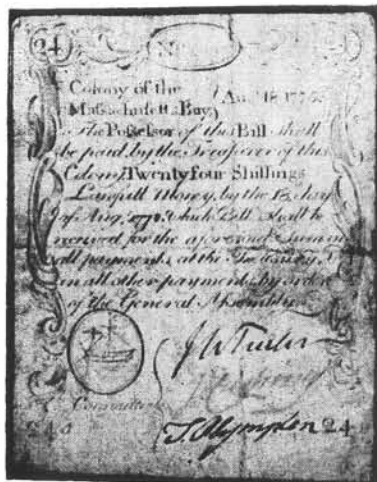 24
Colony of the
Massachusetts Bay Aug. 18. 1775.
The Possessor of this Bill shall
be paid by the Treasurer of this
Colony Twenty four Shillings
Lawfull Money, by the 18 day
of Aug. which Bill shall be
received for the aforesaid Sum in
all payments, at the Treasury &
in all other payments by order
of the General Assembly
Committee
24
24